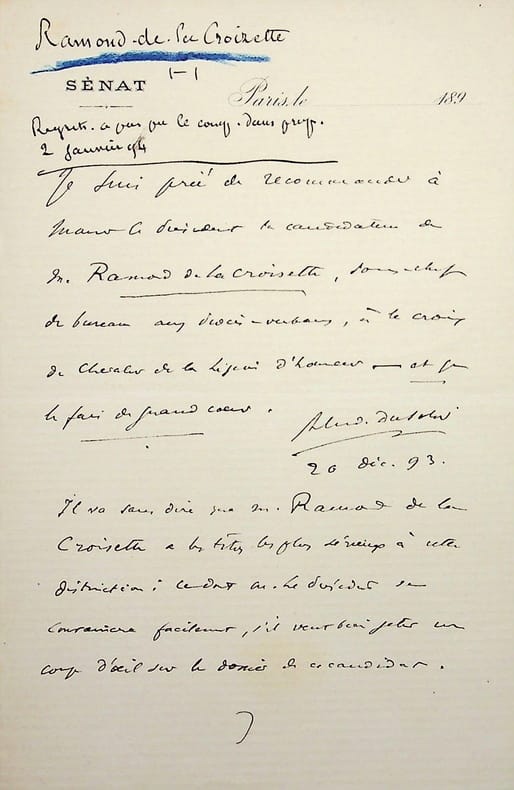 Ramond-de-la Croizette
SÉNAT
Paris, le 189
Regrets. a pas pu le comp. dans prop.
2 Janvier 94
Je suis prié de recommander à
le Président la candidature de
M. Ramond de la Croisette, sous-chef
de bureau aux procès-verbaux, à la croix
de Chevalier de la Légion d'honneur — et je
le fais de grand cœur.
20 déc. 93.
Il va sans dire que M. Ramond de la
Croisette a les titres les plus sérieux à cette
distinction ; ce dont M. le Président se
convaincra facilement, s'il veut bien jeter un
coup d'œil sur le dossier de ce candidat.